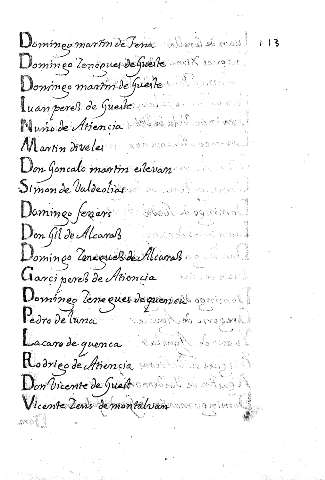 113
Domingo martin de Peña
Domingo Zenegues de Gueste
Domingo martin de Gueste
Iuan perez de Gueste
Nuño de Atiencia
Martin diveles
Don Goncalo martin estevan
Simon de Valdeolias
Domingo ferrers
Don Gil de Alcaraz
Domingo Zeneguez de Alcaraz
Garci perez de Atiencia
Domingo Zenegues de quenca
Pedro de luna
Lacaro de quenca
Rodrigo de Atiencia
Don Vicente de Guest
Vicente de montalvan